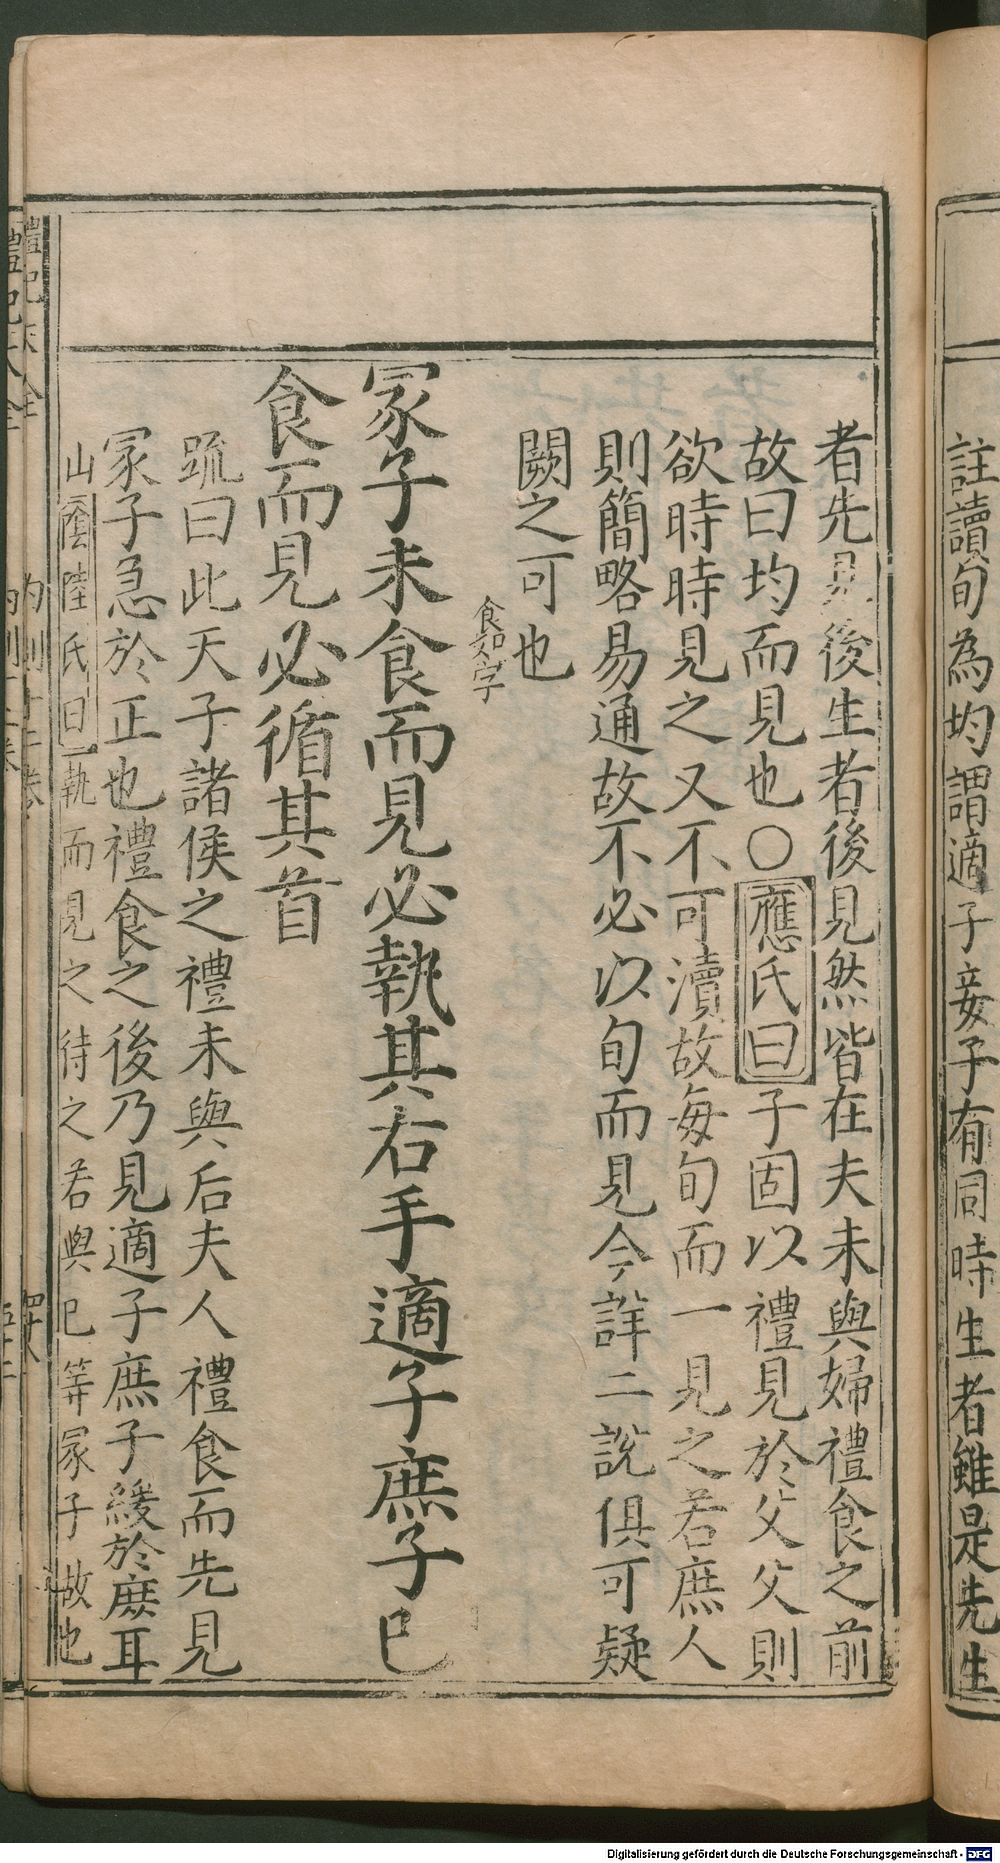 註讀旬為均謂適子妾子有同時生者雖是先生
者先見後生者後見然皆在夫未與婦禮食之前
故曰均而見也○應氏曰子固以禮見於父父則
欲時時見之又不可瀆故每旬而一見之若庶人
則簡略易通故不必以旬而見今詳二說俱可疑
闕之可也
食如字
冢子未食而見必執其右手適子庶子已
食而見必循其首
疏曰此天子諸侯之禮未與后夫人禮食而先見
冢子急於正也禮食之後乃見適子庶子緩於庶耳
山陰陸氏曰執而見之待之若與已等冢子故也
禮記大全
內則十二卷
禮記大全
Digitalisierung gefördert durch die Deutsche Forschungsgemeinschaft - DFG